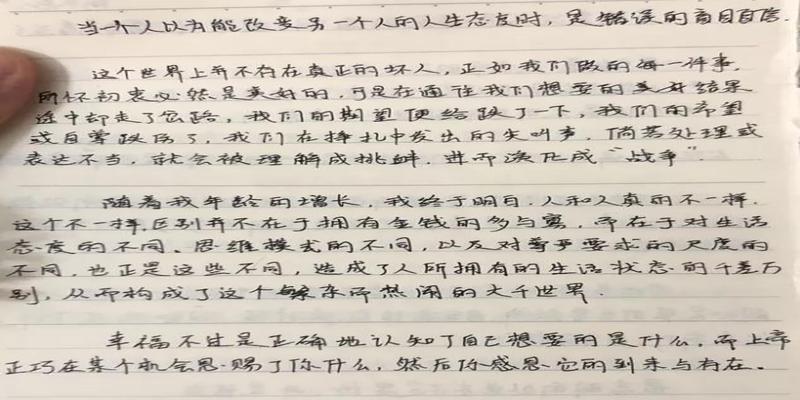 当一个人以为能改变另一个人的人生态度时，是错误的盲目自信．
这个世界上并不存在真正的坏人，正如我们做的每一件事．
所怀初衷必然是美好的，可是在通往我们想要的美好结果
途中却走了岔路，我们的期望便给跌了一下，我们的希望
或自尊跌伤了，我们在挣扎中发出的尖叫声．倘若处理或
表达不当，就会被理解成挑衅．进而演化成“战争”．
随着我年龄的增长，我终于明白，人和人真的不一样．
这个不一样，区别并不在于拥有金钱的多与寡，而在于对生活
态度的不同、思维模式的不同，以及对尊严要求的尺度的
不同，也正是这些不同，造成了人所拥有的生活状态的千差万
别，从而构成了这个繁杂而热闹的大千世界．
幸福不过是正确地认知了自己想要的是什么，而上帝
正巧在某个机会恩赐了你什么，然后你感恩它的到来与存在．